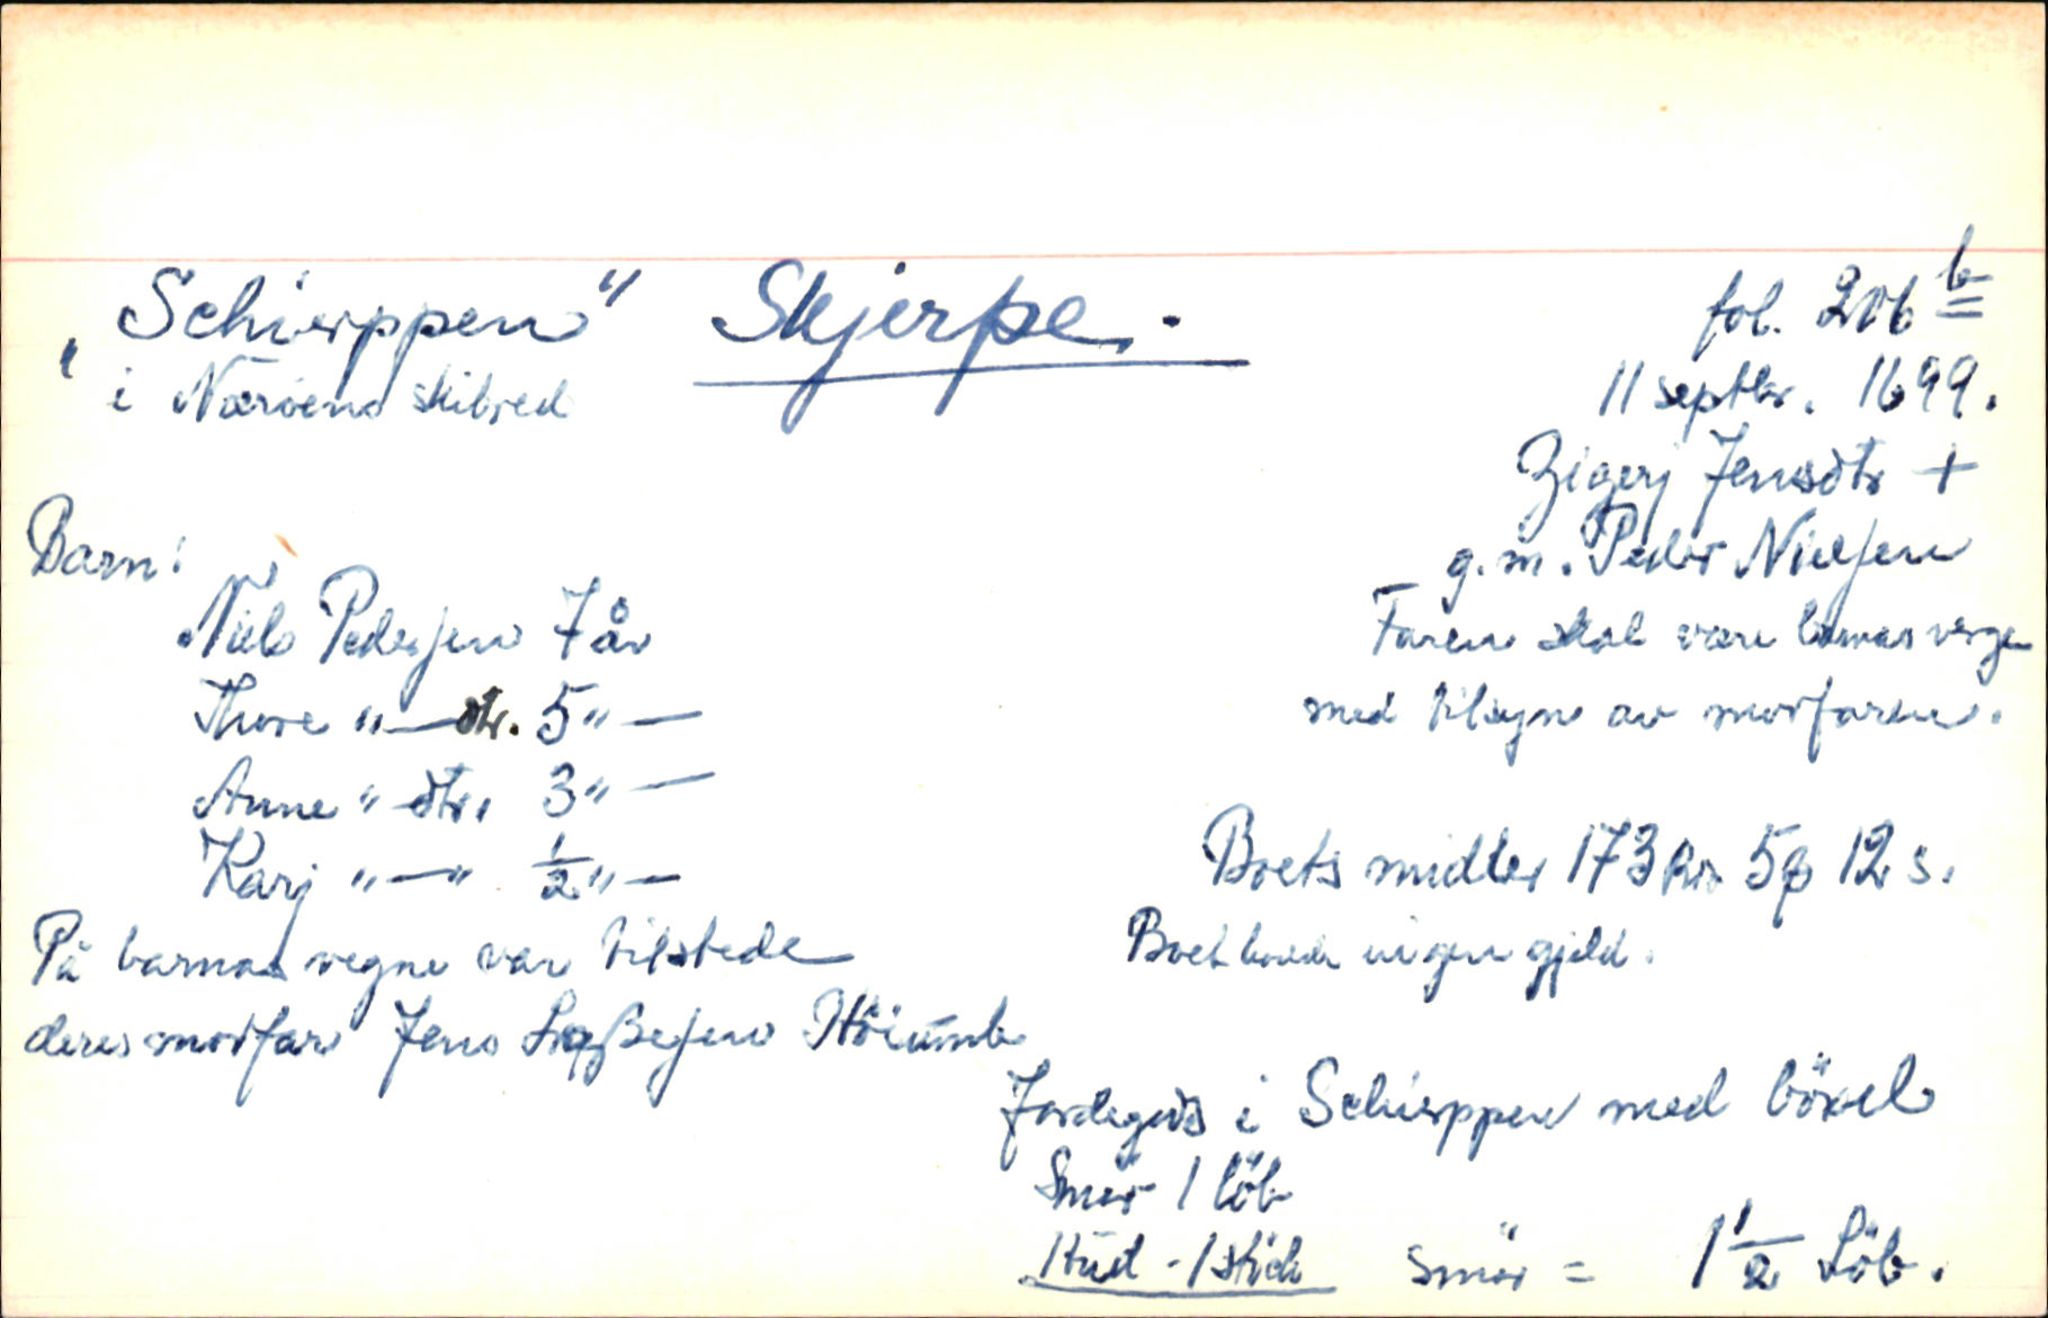 „Schierppen" Skjerpe.
i Nærøens skibred
fol. 206 b
11 septbr. 1699.
Zigerj Jensdtr +
g.m. Peder Nielsen
Faren skal være barnas verge
med tilsyn av morfaren.
Barn:
Niels Pedersen 7 år
Thore "— dtr. 5 " —
Anne " dtr. 3 " —
Karj " — " 1/2 " —
På barnas vegne var tilstede
deres morfar Jens Laßesen Höiumb
Boets midler 173 Rdr 5 12 s.
Boet havde ingen gjeld.
Jordegods i Schierppen med böxel
Smör 1 löb
Hud - 1 stück smör = 1 1/2 Löb.